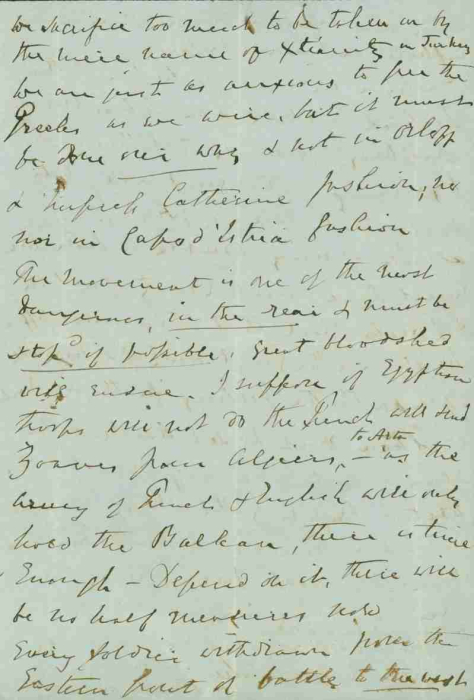 we sacrifice too much to be taken in by
the mere name of Xtianity in Turkey
we are just as anxious to free the
Greeks as we were, but it must
be done our way & not in Orloff
& Catherine fashion, no
nor in Capo d'Istria fashion
The movement is one of the most
dangerous, in the rear & must be
stopd if possible, great bloodshed
will ensue. I suppose if Egyptian
troops will not do the French will send
Zouaves from Algiers, to Arta – as the
army of French & English will only
hold the Balkan, there is time
Enough – Depend on it, there will
be no half measures now
Every soldier withdrawn from the
Eastern front of battle to the west